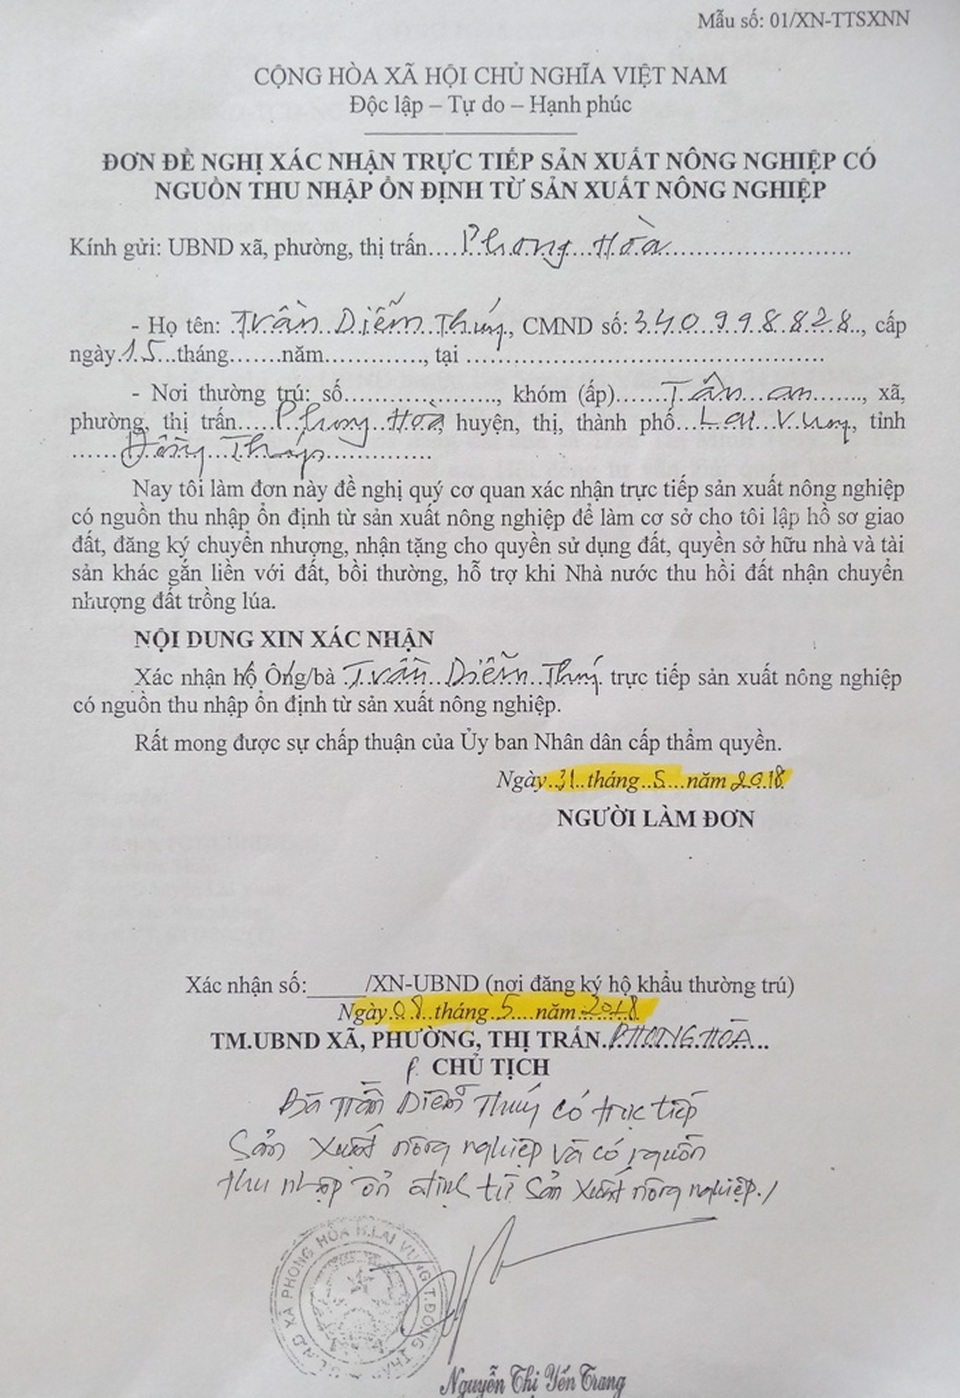 Mẫu số: 01/XN-TTSXNN
CỘNG HÒA XÃ HỘI CHỦ NGHĨA VIỆT NAM
Độc lập – Tự do – Hạnh phúc
ĐƠN ĐỀ NGHỊ XÁC NHẬN TRỰC TIẾP SẢN XUẤT NÔNG NGHIỆP CÓ
NGUỒN THU NHẬP ỔN ĐỊNH TỪ SẢN XUẤT NÔNG NGHIỆP
Kính gửi: UBND xã, phường, thị trấn....Phong Hòa......................
- Họ tên: Trần Diễm Thúy, CMND số: 340998828, cấp
ngày 15...tháng.......năm............, tại ..........................................
- Nơi thường trú: số......................, khóm (ấp)......Tân an......, xã,
phường, thị trấn....Phong Hòa, huyện, thị, thành phố...Lai Vung, tỉnh
......Đồng Tháp..............
Nay tôi làm đơn này đề nghị quý cơ quan xác nhận trực tiếp sản xuất nông nghiệp
có nguồn thu nhập ổn định từ sản xuất nông nghiệp để làm cơ sở cho tôi lập hồ sơ giao
đất, đăng ký chuyển nhượng, nhận tặng cho quyền sử dụng đất, quyền sở hữu nhà và tài
sản khác gắn liền với đất, bồi thường, hỗ trợ khi Nhà nước thu hồi đất nhận chuyển
nhượng đất trồng lúa.
NỘI DUNG XIN XÁC NHẬN
Xác nhận hộ Ông/bà Trần Diễm Thúy trực tiếp sản xuất nông nghiệp
có nguồn thu nhập ổn định từ sản xuất nông nghiệp.
Rất mong được sự chấp thuận của Ủy ban Nhân dân cấp thẩm quyền.
Ngày..31..tháng..5....năm 2018
NGƯỜI LÀM ĐƠN
Xác nhận số:_____/XN-UBND (nơi đăng ký hộ khẩu thường trú)
Ngày..08..tháng...5....năm..2018
TM.UBND XÃ, PHƯỜNG, THỊ TRẤN.PHONG HÒA...
CHỦ TỊCH
Bà Trần Diễm Thúy có trực tiếp
Sản xuất nông nghiệp và có nguồn
thu nhập ổn định từ sản xuất nông nghiệp./
XÃ PHONG HÒA H.LAI VUNG T.ĐỒNG THÁP
Nguyễn Thị Yến Trang